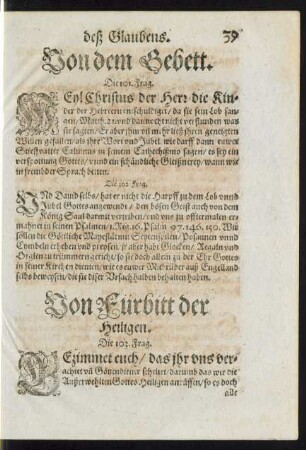 deß Glaubens. 39
Von dem Gebett.
Die 101. Frag.
WEyl Christus der Herr die Kin-
der der Hebreern entschuldiget, da sie sein Lob san-
gen, Matth. 21. vnd dannoch nicht verstunden was
sie sagten/ Er aber jhm vil mehr ließ jhren geneigten
Willen gefallen/ als jhre Wort vnd Jubil. wie darff dann ewer
Calvinus in seinem Catechismo sagen/ es sey ein
verspottung Gottes/ vnnd ein schändliche Gleißnerey/ wann wir
in frembder Sprach beten.
Die 102. Frag.
VNd Dauid selbs/ hat er nicht die Harpff zu dem Lob vnnd
Jubel Gottes angewendt/ den bösen Geist auch von dem
König Saul darmit vertriben/ vnd vns zu offtermalen er-
mahnet in seinen Psalmen/ 1. Reg. 16. Psalm 97. 146. 150. Wir
söllen die Göttliche Mayestät mit Posaunen vnnd
Cymbeln erheben vnd preysen. jr aber habt Glocken/ Regaln vnd
Orglen zu trümmern gericht/ so sie doch allein zu der Ehr Gottes
in seiner Kirchen dienten/ wie es ewer Mitbrüder auß Engelland
selbs beweysen/ die sie diser Vrsach halben behalten haben.
Von Fürbitt der
Heiligen.
Die 103. Frag.
GEzimmet euch/ das jhr vns ver-
achtet vñ Götzendiener scheltet/ darumb das wir die
Außerwehlten Gottes Heiligen anrüffen/ so es doch
alle